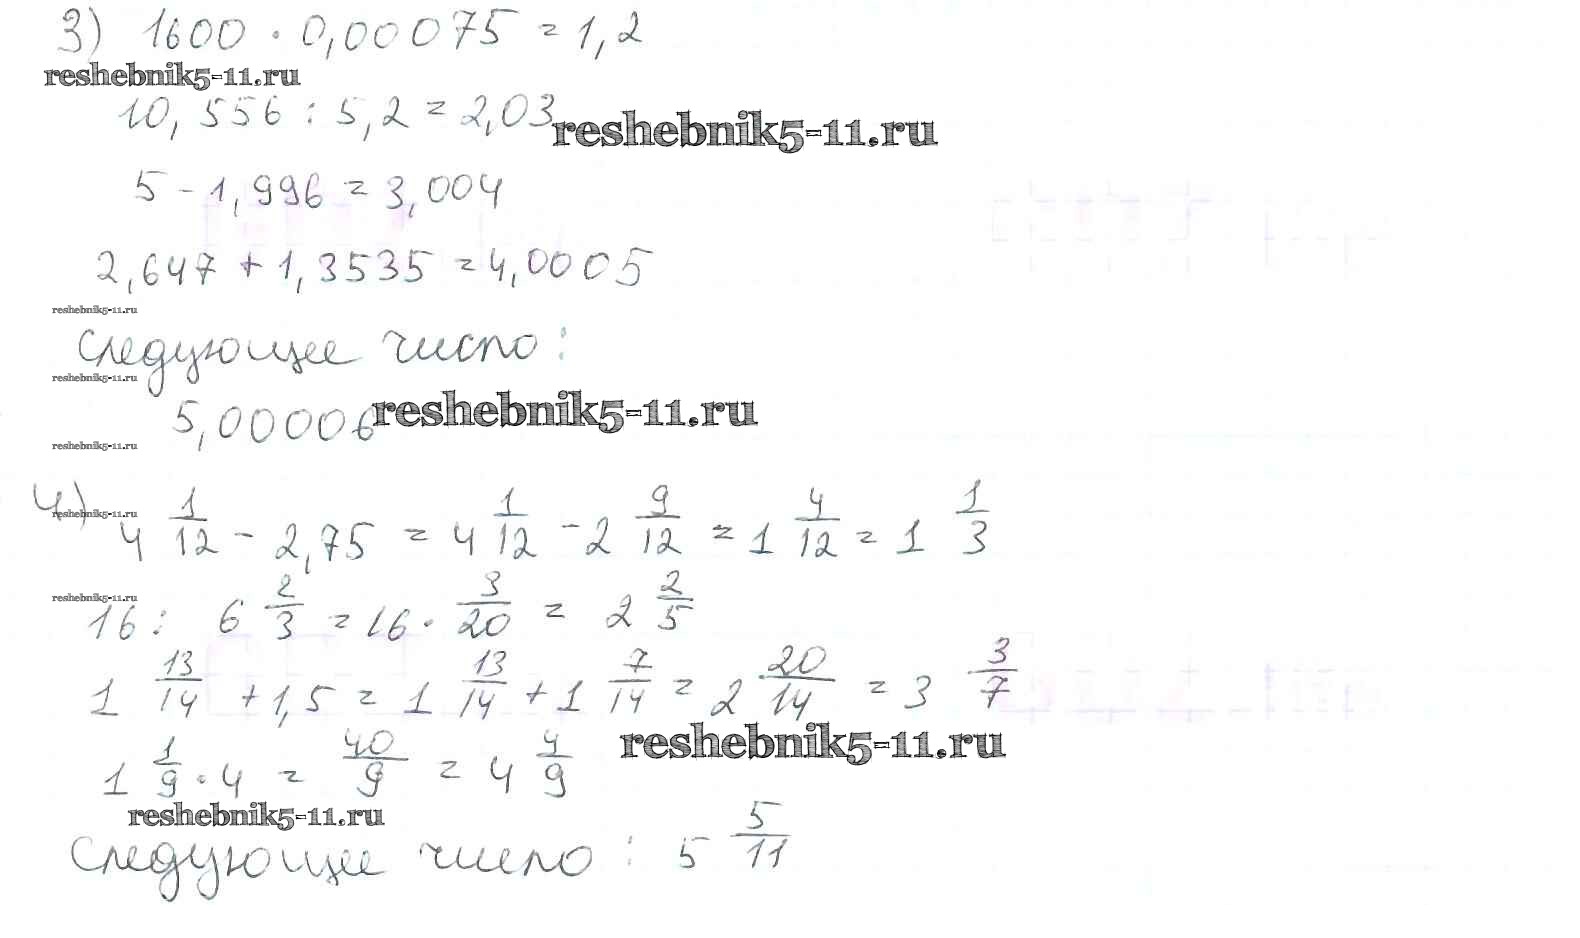 3) 1600 · 0,00075 = 1,2
reshebnik5-11.ru
10,556 : 5,2 = 2,03
reshebnik5-11.ru
5 - 1,996 = 3,004
2,647 + 1,3535 = 4,0005
reshebnik5-11.ru
Следующее число:
reshebnik5-11.ru
5,00006
reshebnik5-11.ru
reshebnik5-11.ru
4) 4 1/12 - 2,75 = 4 1/12 - 2 9/12 = 1 4/12 = 1 1/3
reshebnik5-11.ru
reshebnik5-11.ru
16 : 6 2/3 = 16 · 3/20 = 2 2/5
1 13/14 + 1,5 = 1 13/14 + 1 7/14 = 2 20/14 = 3 3/7
reshebnik5-11.ru
1 1/9 · 4 = 40/9 = 4 4/9
reshebnik5-11.ru
Следующее число: 5 5/11